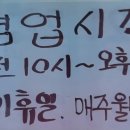 영업시간
오전 10시~오후
휴일. 매주월